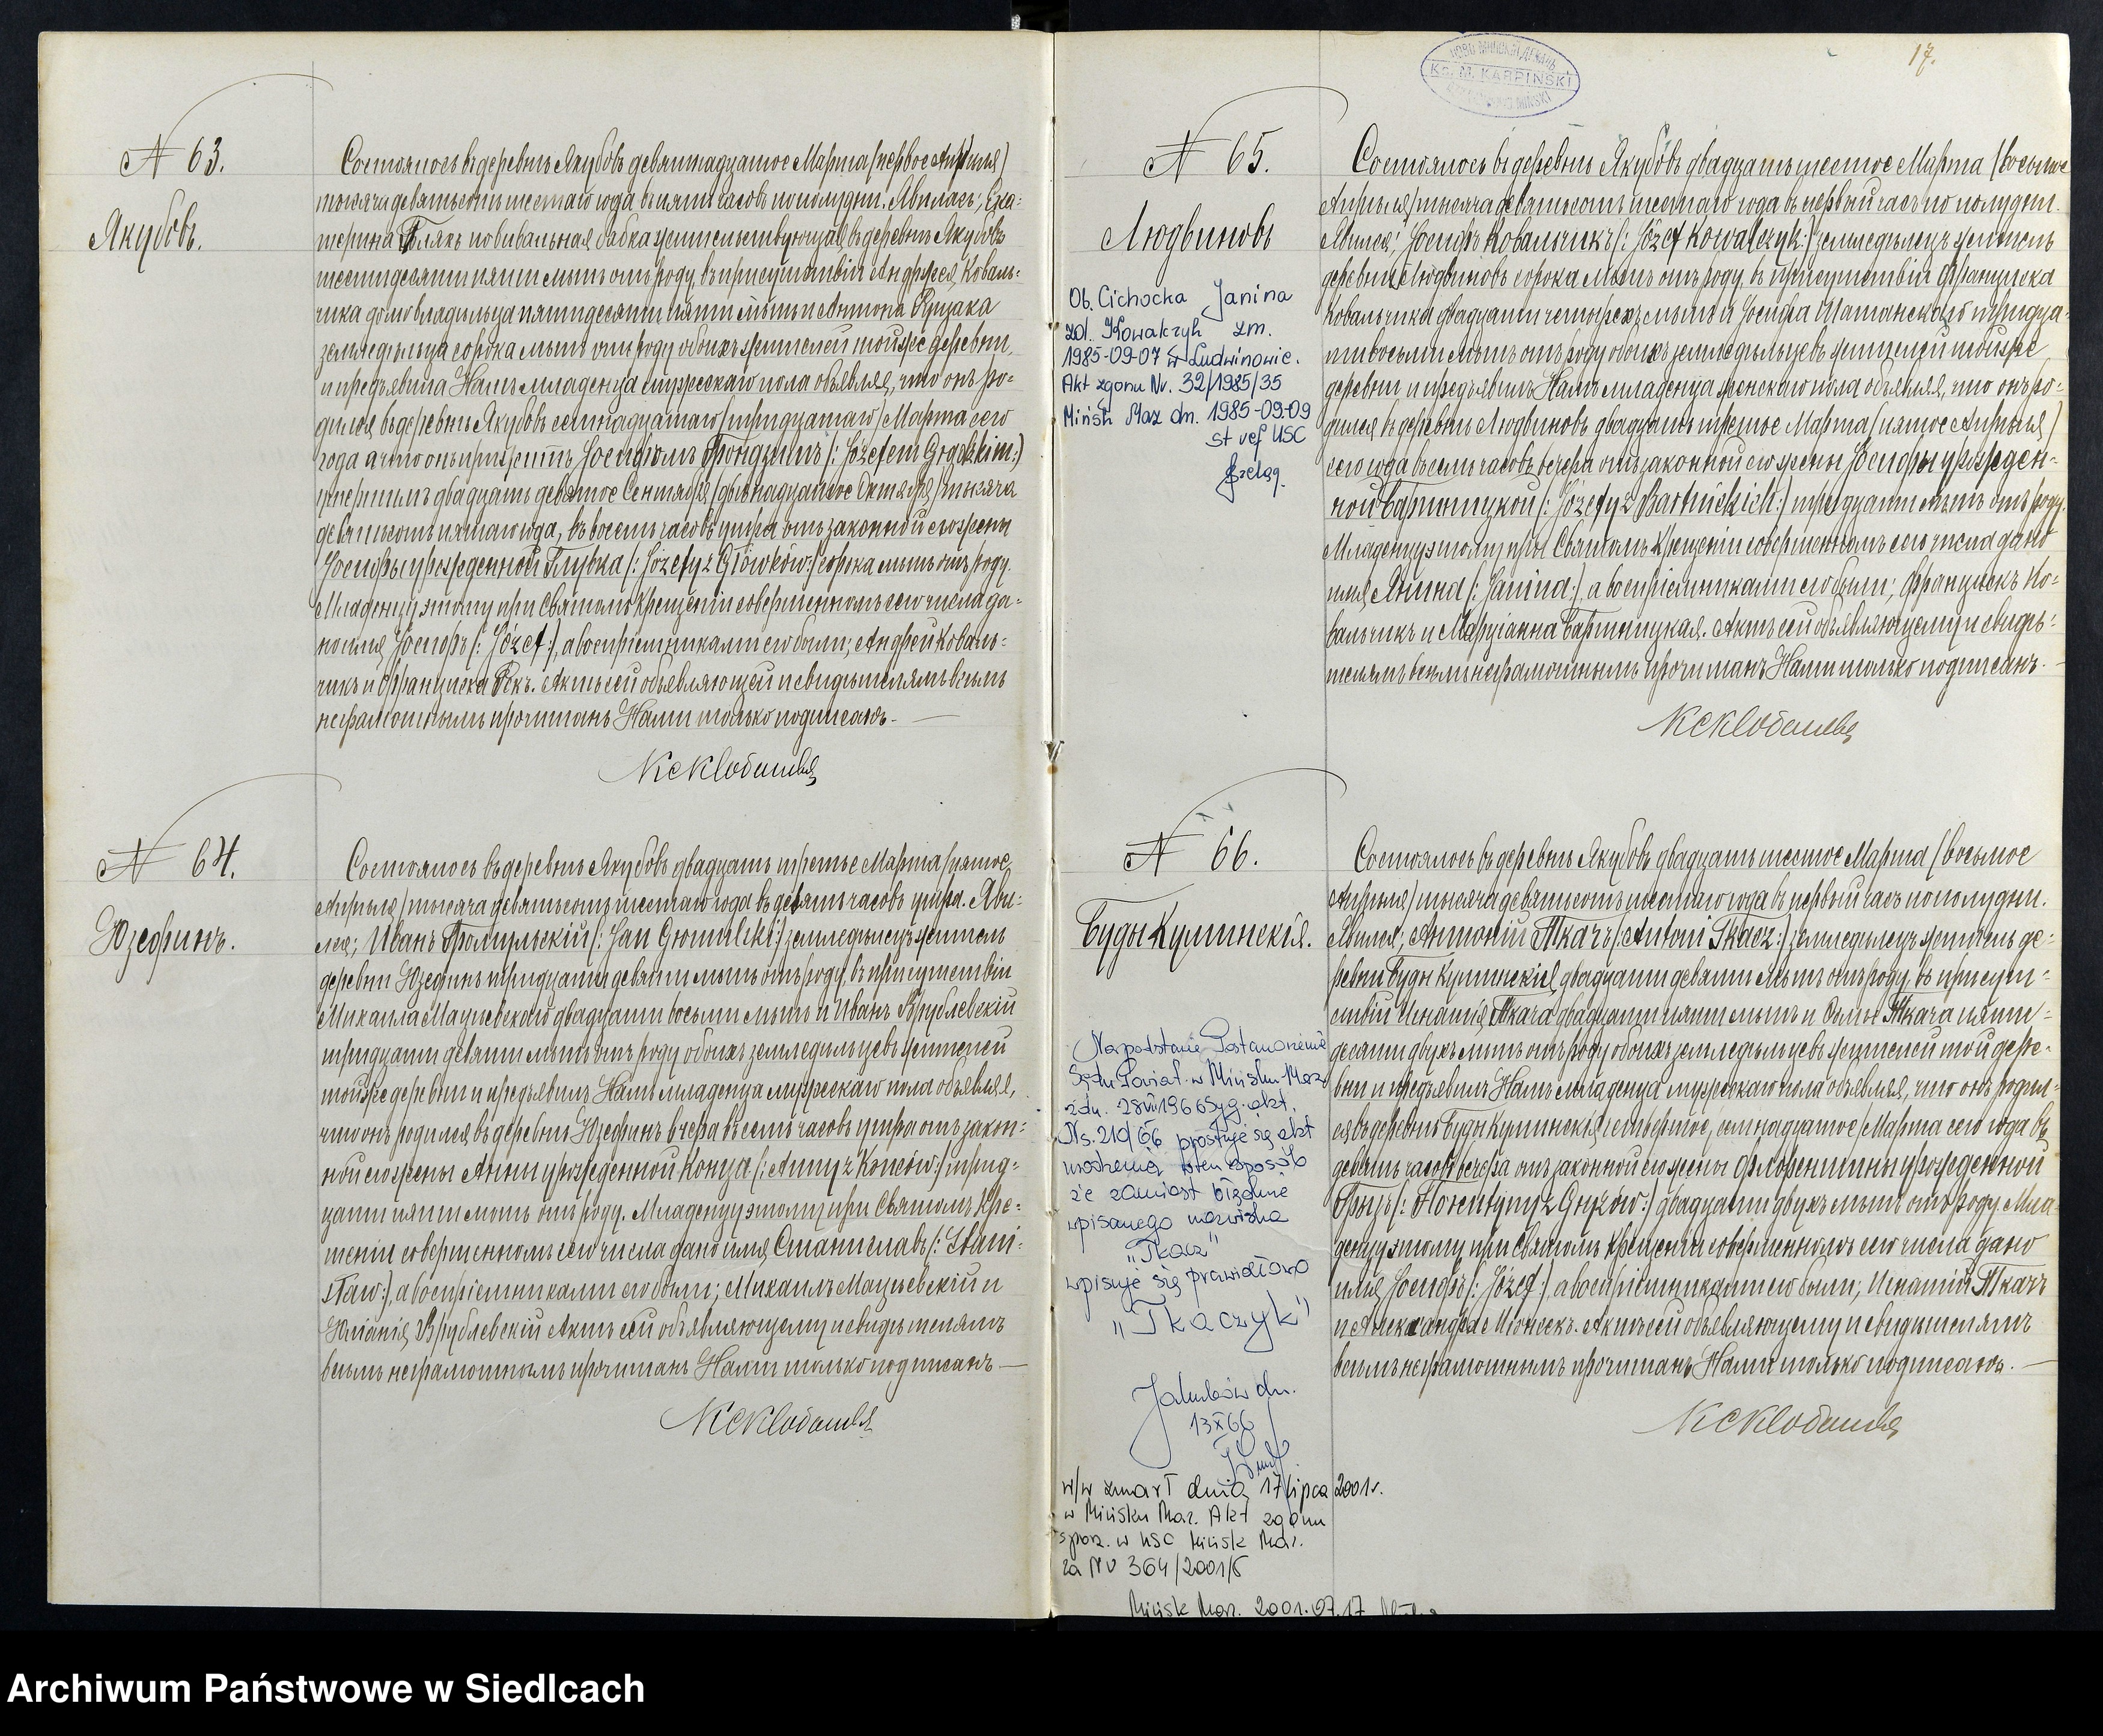 № 63.
Якубовъ.
Состоялось въ деревнѣ Якубовъ девятнадцатое Марта /первое Апрѣля/
тысяча девятьсотъ шестаго года въ пять часовъ пополудни. Явилась; Ека-
терина Полякъ повивальная бабка жительствующая въ деревнѣ Якубовъ
шестидесяти пяти лѣтъ отъ роду, въ присутствіи Андрея Коваль-
чика домовладѣльца пятидесяти пяти лѣтъ и Антона
земледѣльца сорока лѣтъ отъ роду обоихъ жителей тойже деревни,
и предъявила Намъ младенца мужескаго пола объявляя, что онъ ро-
дился въ деревнѣ Якубовъ семнадцатаго /тридцатаго/ Марта сего
года а что онъ прижитъ Іосифомъ /: Józefem Grodzkim:/
умершимъ двадцать девятое Сентября /двѣнадцатое Октября/ тысяча
девятьсотъ пятаго года, въ восемь часовъ утра отъ законной его жены
Іосифы урожденной Глувка /: Józefy z Główków:/ сорока лѣтъ отъ роду.
Младенцу этому при Святомъ Крещеніи совершенномъ сего числа да-
но имя Іосифъ /: Józef:/, а воспріемниками его были; Андрей Коваль-
чикъ и Франциска Рекъ. Актъ сей объявляющей и свидѣтелямъ всѣмъ
неграмотнымъ прочитанъ Нами только подписанъ. —
№ 64.
Юзефинъ.
Состоялось въ деревнѣ Якубовъ двадцать третье Марта /пятое
Апрѣля/ тысяча девятьсотъ шестаго года въ девять часовъ утра. Яви-
лся; Иванъ Громульскій /: Jan Gromulski:/ земледѣлецъ житель
деревни Юзефинъ тридцати девяти лѣтъ отъ роду, въ присутствіи
Михаила Мацѣевскаго двадцати восьми лѣтъ и Иванъ Врублевскій
тридцати девяти лѣтъ отъ роду обоихъ земледѣльцевъ жителей
тойже деревни и предъявилъ Намъ младенца мужескаго пола объявляя,
что онъ родился въ деревнѣ Юзефинъ вчера въ семь часовъ утра отъ закон-
ной его жены Анны урожденной Конца /: Anny z Końców:/ трид-
цати пяти лѣтъ отъ роду. Младенцу этому при Святомъ Кре-
щеніи совершенномъ сего числа дано имя Станиславъ /: Stani-
sław:/, а воспріемниками его были; Михаилъ Мацѣевскій и
Юліанія Врублевскій Актъ сей объявляющему и свидѣтелямъ
всѣмъ неграмотнымъ прочитанъ Нами только подписанъ —
17.
Ks. M. KARPIŃSKI
№ 65.
Людвиновъ
Ob. Cichocka Janina
zd. Kowalczyk zm.
1985-09-07 w Ludwinowie.
Akt zgonu Nr. 32/1985/35
Mińsk Maz dn. 1985-09-09
st ref USC
Состоялось въ деревнѣ Якубовъ двадцать шестое Марта /восьмое
Апрѣля/ тысяча девятьсотъ шестаго года въ первый часъ по полудни.
Явился; Іосифъ Ковальчикъ /: Józef Kowalczyk:/ земледѣлецъ житель
деревни Людвиновъ сорока лѣтъ отъ роду, въ присутствіи Франциска
Ковальчика двадцати четырехъ лѣтъ и Іосифа Шатанскаго тридца-
ти восьми лѣтъ отъ роду обоихъ земледѣльцевъ жителей тойже
деревни и предъявилъ Намъ младенца женскаго пола объявляя, что онъ ро-
дился въ деревнѣ Людвиновъ двадцать третье Марта /пятое Апрѣля/
сего года въ семь часовъ вечера отъ законной его жены Іосифы урожден-
ной Бартницкой /: Józefy z Bartnickich:/ тридцати лѣтъ отъ роду.
Младенцу этому при Святомъ Крещеніи совершенномъ сего числа дано
имя Янина /: Janina:/, а воспріемниками его были; Францискъ Ко-
вальчикъ и Маріанна Бартницкая. Актъ сей объявляющему и свидѣ-
телямъ всѣмъ неграмотнымъ прочитанъ Нами только подписанъ. —
№ 66.
Буды Куминскія.
Na podstawie Postanowienia
Sądu Powiat. w Mińsku Maz.
z dn. 28 VI 1966 Syg. akt.
Ns. 210/66 prostuje się akt
urodzenia w ten sposób
że zamiast błędnie
wpisanego nazwiska
"Tkacz"
wpisuje się prawidłowo
"Tkaczyk"
Jakubów dn.
13 X 66
w/w zmarł dnia 17 lipca 2001 r.
w Mińsku Maz. Akt zgonu
sporz. w USC Mińsk Maz.
za Nr 364/2001/
Mińsk Maz. 2001.07.17
Состоялось въ деревнѣ Якубовъ двадцать шестое Марта /восьмое
Апрѣля/ тысяча девятьсотъ шестаго года въ первый часъ пополудни.
Явился; Антоній Ткачъ /: Antoni Tkacz:/ земледѣлецъ житель де-
ревни Буды Куминскія двадцати девяти лѣтъ отъ роду, въ присут-
ствіи Игнатія Ткача двадцати пяти лѣтъ и Ткача пяти-
десяти двухъ лѣтъ отъ роду обоихъ земледѣльцевъ жителей той дере-
вни и предъявилъ Намъ младенца мужескаго пола объявляя, что онъ родил-
ся въ деревнѣ Буды Куминскія четвертое /семнадцатое/ Марта сего года въ
девять часовъ вечера отъ законной его жены Флорентины урожденной
Грызъ /: Florentyny z Gryzów:/ двадцати двухъ лѣтъ отъ роду. Мла-
денцу этому при Святомъ Крещеніи совершенномъ сего числа дано
имя Іосифъ /: Józef:/, а воспріемниками его были; Игнатій Ткачъ
и Александра Мюнсекъ. Актъ сей объявляющему и свидѣтелямъ
всѣмъ неграмотнымъ прочитанъ Нами только подписанъ. —
Archiwum Państwowe w Siedlcach